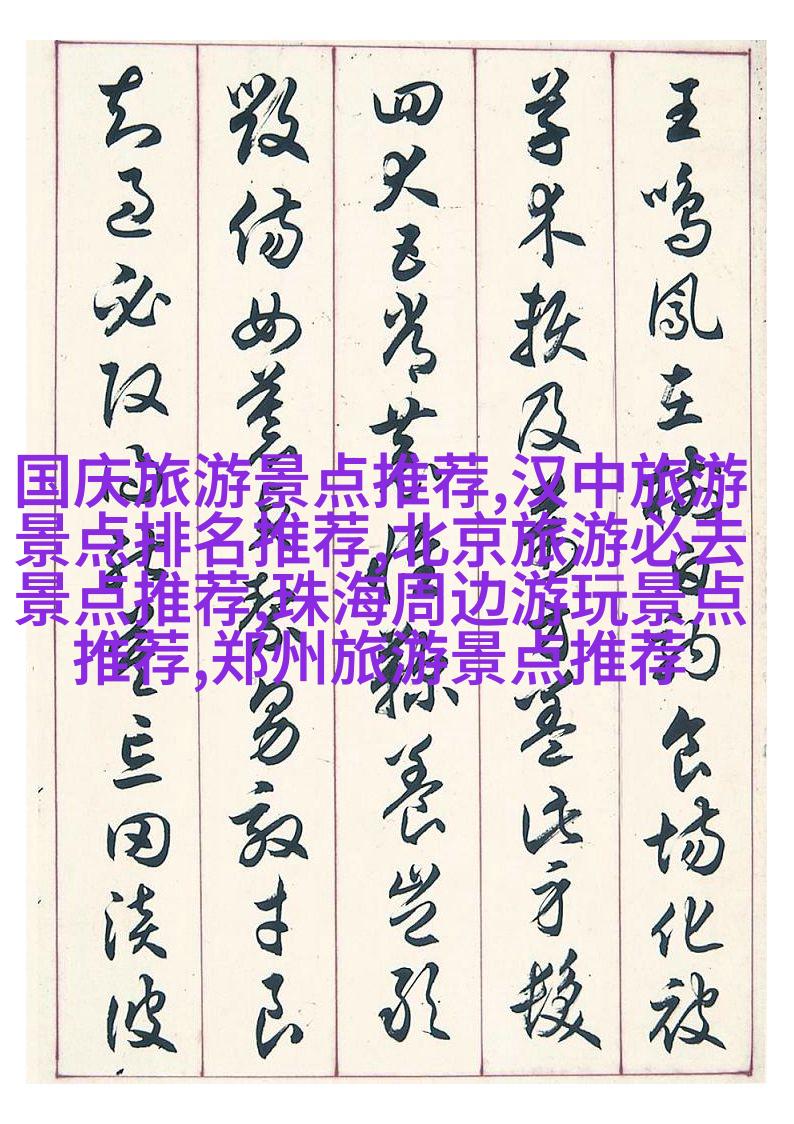 国庆旅游景点推荐,汉中旅游
景点排名推荐,北京旅游必去
景点推荐,珠海周边游玩景点
推荐,郑州旅游景点推荐
王鳴鳳在樹白駒食場化被
草木賴及萬方蓋此身髮
四大五常恭惟鞠養豈敢
毀傷女慕貞絜男效才良
知過必改得能莫忘罔談彼